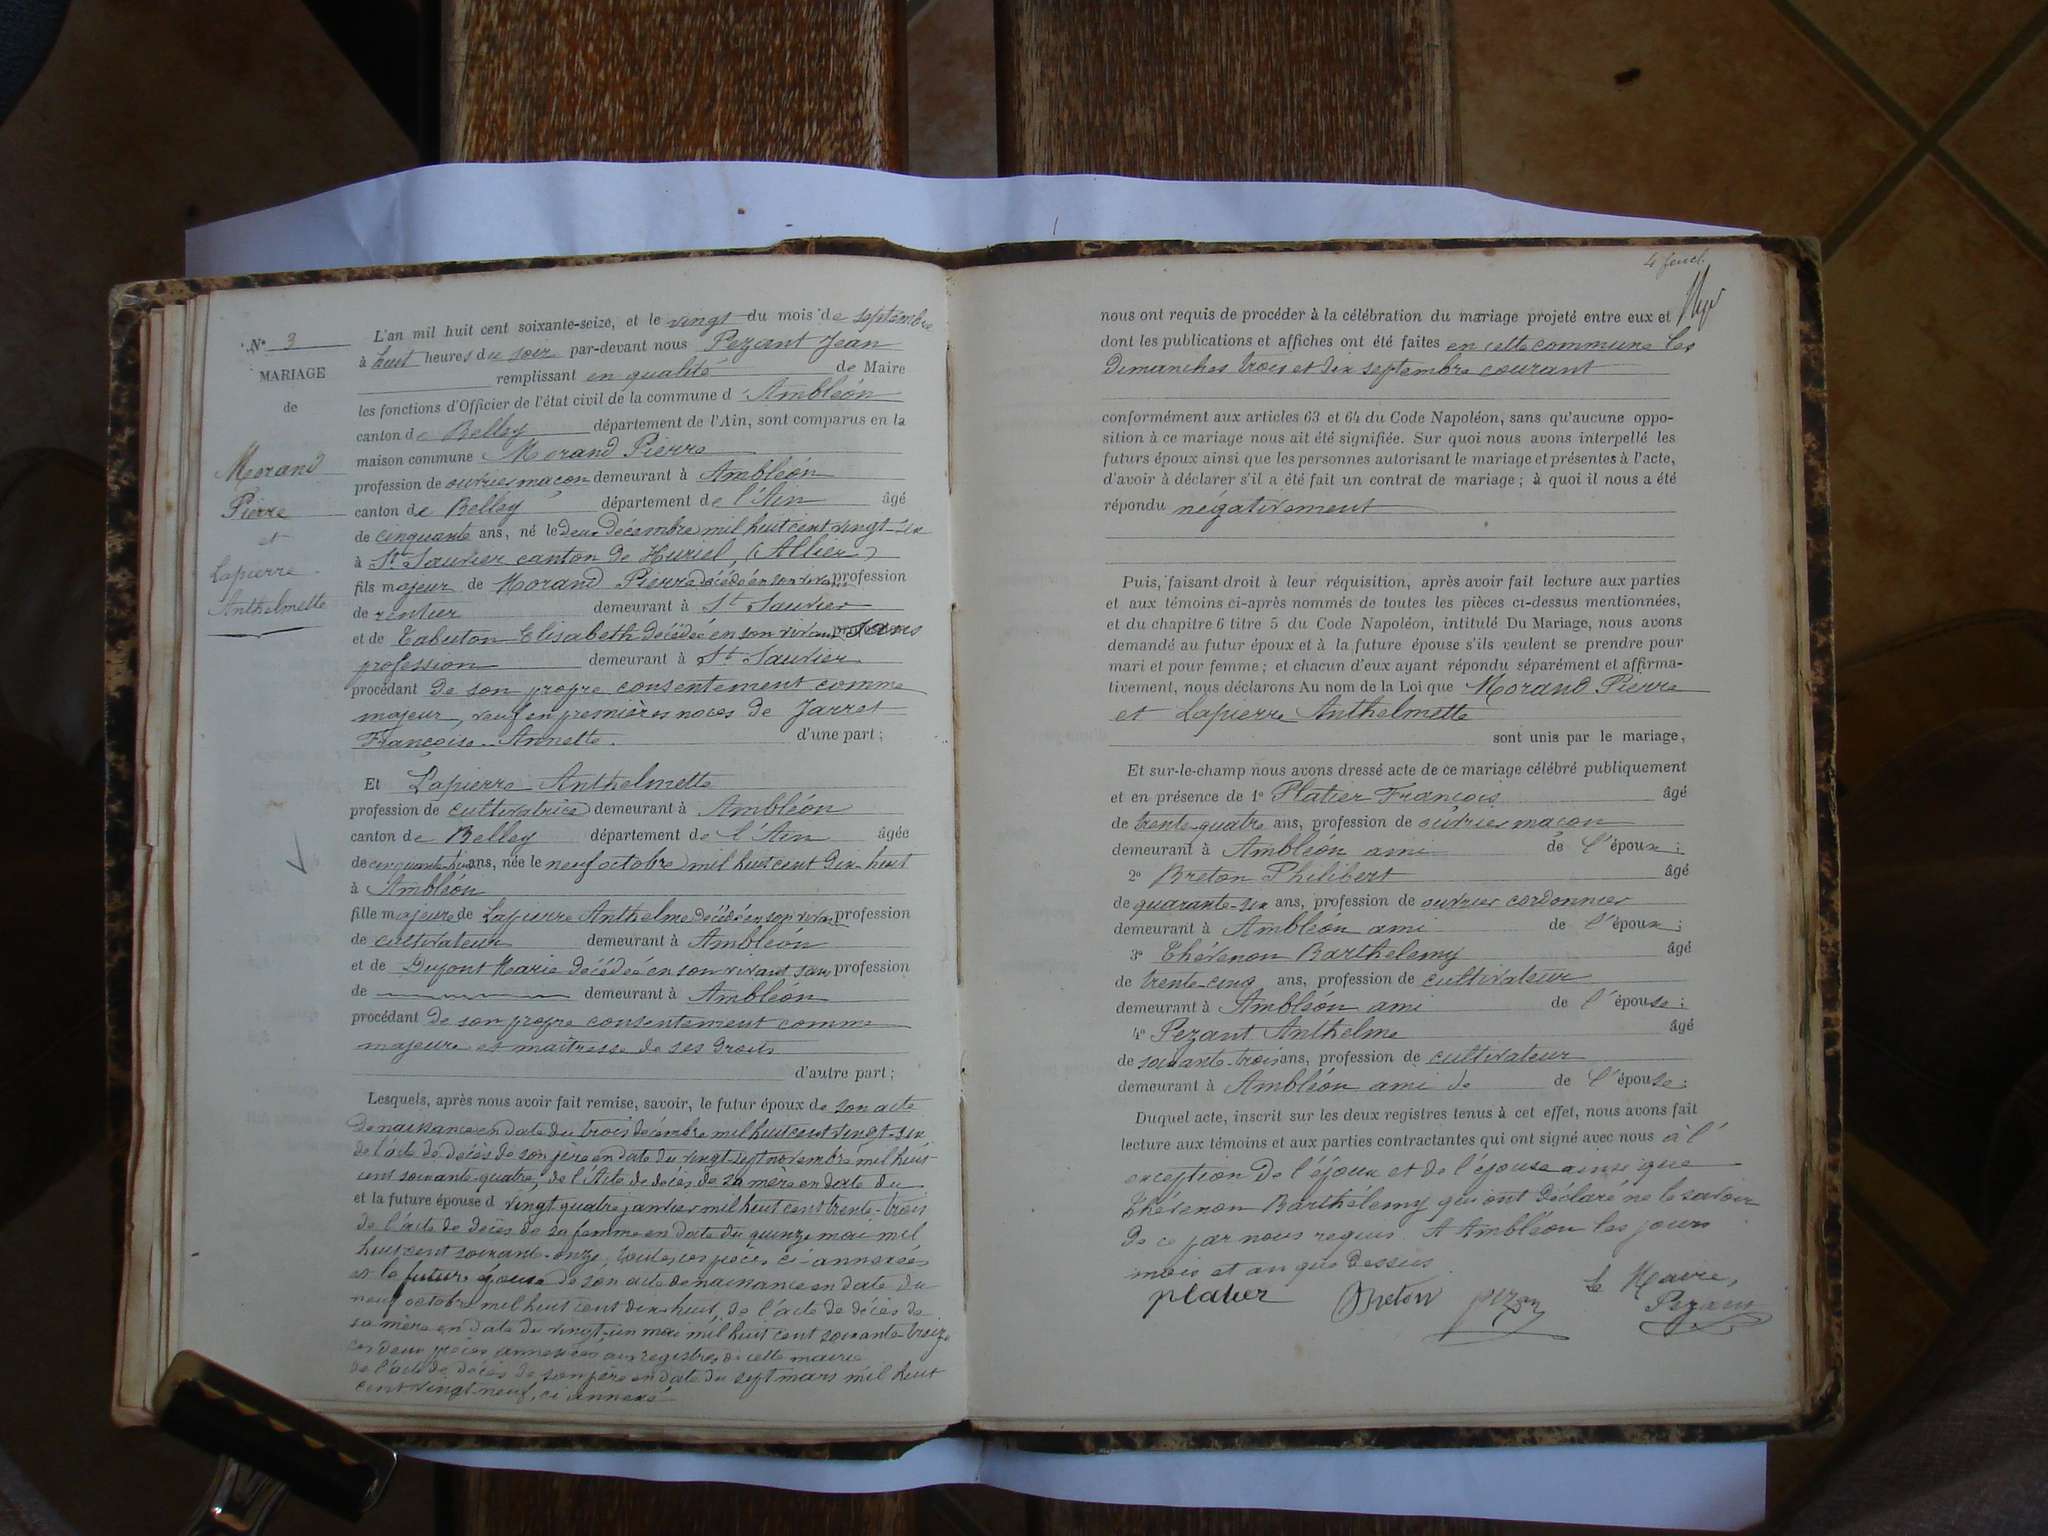 N° 3
MARIAGE
de
Morand
Pierre
et
Lapierre
Anthelmette
L'an mil huit cent soixante-seize, et le vingt du mois de septembre
à huit heures du soir par-devant nous Pezant Jean
remplissant en qualité de Maire
les fonctions d'Officier de l'état civil de la commune d'Ambléon
canton de Belley département de l'Ain, sont comparus en la
maison commune Morand Pierre
profession de ouvrier maçon demeurant à Ambléon
canton de Belley département de l'Ain âgé
de cinquante ans, né le deux décembre mil huit cent vingt-six
à St Sauvier canton de Huriel, (Allier)
fils majeur de Morand Pierre décédé en son vivant profession
de rentier demeurant à St Sauvier
et de Tabuton Elisabeth décédée en son vivant sans
profession demeurant à St Sauvier
procédant de son propre consentement comme
majeur, veuf en premières noces de Jarret
Françoise-Annette. d'une part;
Et Lapierre Anthelmette
profession de cultivatrice demeurant à Ambléon
canton de Belley département de l'Ain âgée
de cinquante-huit ans, née le neuf octobre mil huit cent dix-huit
à Ambléon
fille majeure de Lapierre Anthelme décédé en son vivant profession
de cultivateur demeurant à Ambléon
et de Dupont Marie décédée en son vivant sans profession
de demeurant à Ambléon
procédant de son propre consentement comme
majeure et maîtresse de ses droits
d'autre part;
Lesquels, après nous avoir fait remise, savoir, le futur époux de son acte
de naissance en date du trois décembre mil huit cent vingt-six
de l'acte de décès de son père en date du vingt-sept novembre mil huit
cent soixante-quatre, de l'Acte de décès de sa mère en date du
et la future épouse d vingt quatre janvier mil huit cent trente-trois
de l'acte de décès de sa femme en date du quinze mai mil
huit cent soixante-onze, toutes ces pièces ci-annexées
et la future épouse de son acte de naissance en date du
neuf octobre mil huit cent dix-huit, de l'acte de décès de
sa mère en date du vingt-un mai mil huit cent soixante treize
ces deux pièces annexées aux registres de cette mairie
de l'acte de décès de son père en date du sept mars mil huit
cent vingt neuf, ci annexé
4 feuil.
nous ont requis de procéder à la célébration du mariage projeté entre eux et
dont les publications et affiches ont été faites en cette commune les
Dimanches trois et dix septembre courant
conformément aux articles 63 et 64 du Code Napoléon, sans qu'aucune oppo-
sition à ce mariage nous ait été signifiée. Sur quoi nous avons interpellé les
futurs époux ainsi que les personnes autorisant le mariage et présentes à l'acte,
d'avoir à déclarer s'il a été fait un contrat de mariage; à quoi il nous a été
répondu négativement
Puis, faisant droit à leur réquisition, après avoir fait lecture aux parties
et aux témoins ci-après nommés de toutes les pièces ci-dessus mentionnées,
et du chapitre 6 titre 5 du Code Napoléon, intitulé Du Mariage, nous avons
demandé au futur époux et à la future épouse s'ils veulent se prendre pour
mari et pour femme; et chacun d'eux ayant répondu séparément et affirma-
tivement, nous déclarons Au nom de la Loi que Morand Pierre
et Lapierre Anthelmette
sont unis par le mariage,
Et sur-le-champ nous avons dressé acte de ce mariage célébré publiquement
et en présence de 1° Platier François âgé
de trente-quatre ans, profession de ouvrier maçon
demeurant à Ambléon ami de l'époux;
2° Breton Philibert âgé
de quarante-six ans, profession de ouvrier cordonnier
demeurant à Ambléon ami de l'époux;
3° Thévenon Barthelemy âgé
de trente-cinq ans, profession de cultivateur
demeurant à Ambléon ami de l'épouse;
4° Pezant Anthelme âgé
de soixante-trois ans, profession de cultivateur
demeurant à Ambléon ami de de l'épouse;
Duquel acte, inscrit sur les deux registres tenus à cet effet, nous avons fait
lecture aux témoins et aux parties contractantes qui ont signé avec nous à l'
exception de l'époux et de l'épouse ainsi que
Thévenon Barthélemy qui ont déclaré ne le savoir
de ce par nous requis. A Ambléon les jours
mois et an que dessus.
platier Breton Le Maire,
Pezant